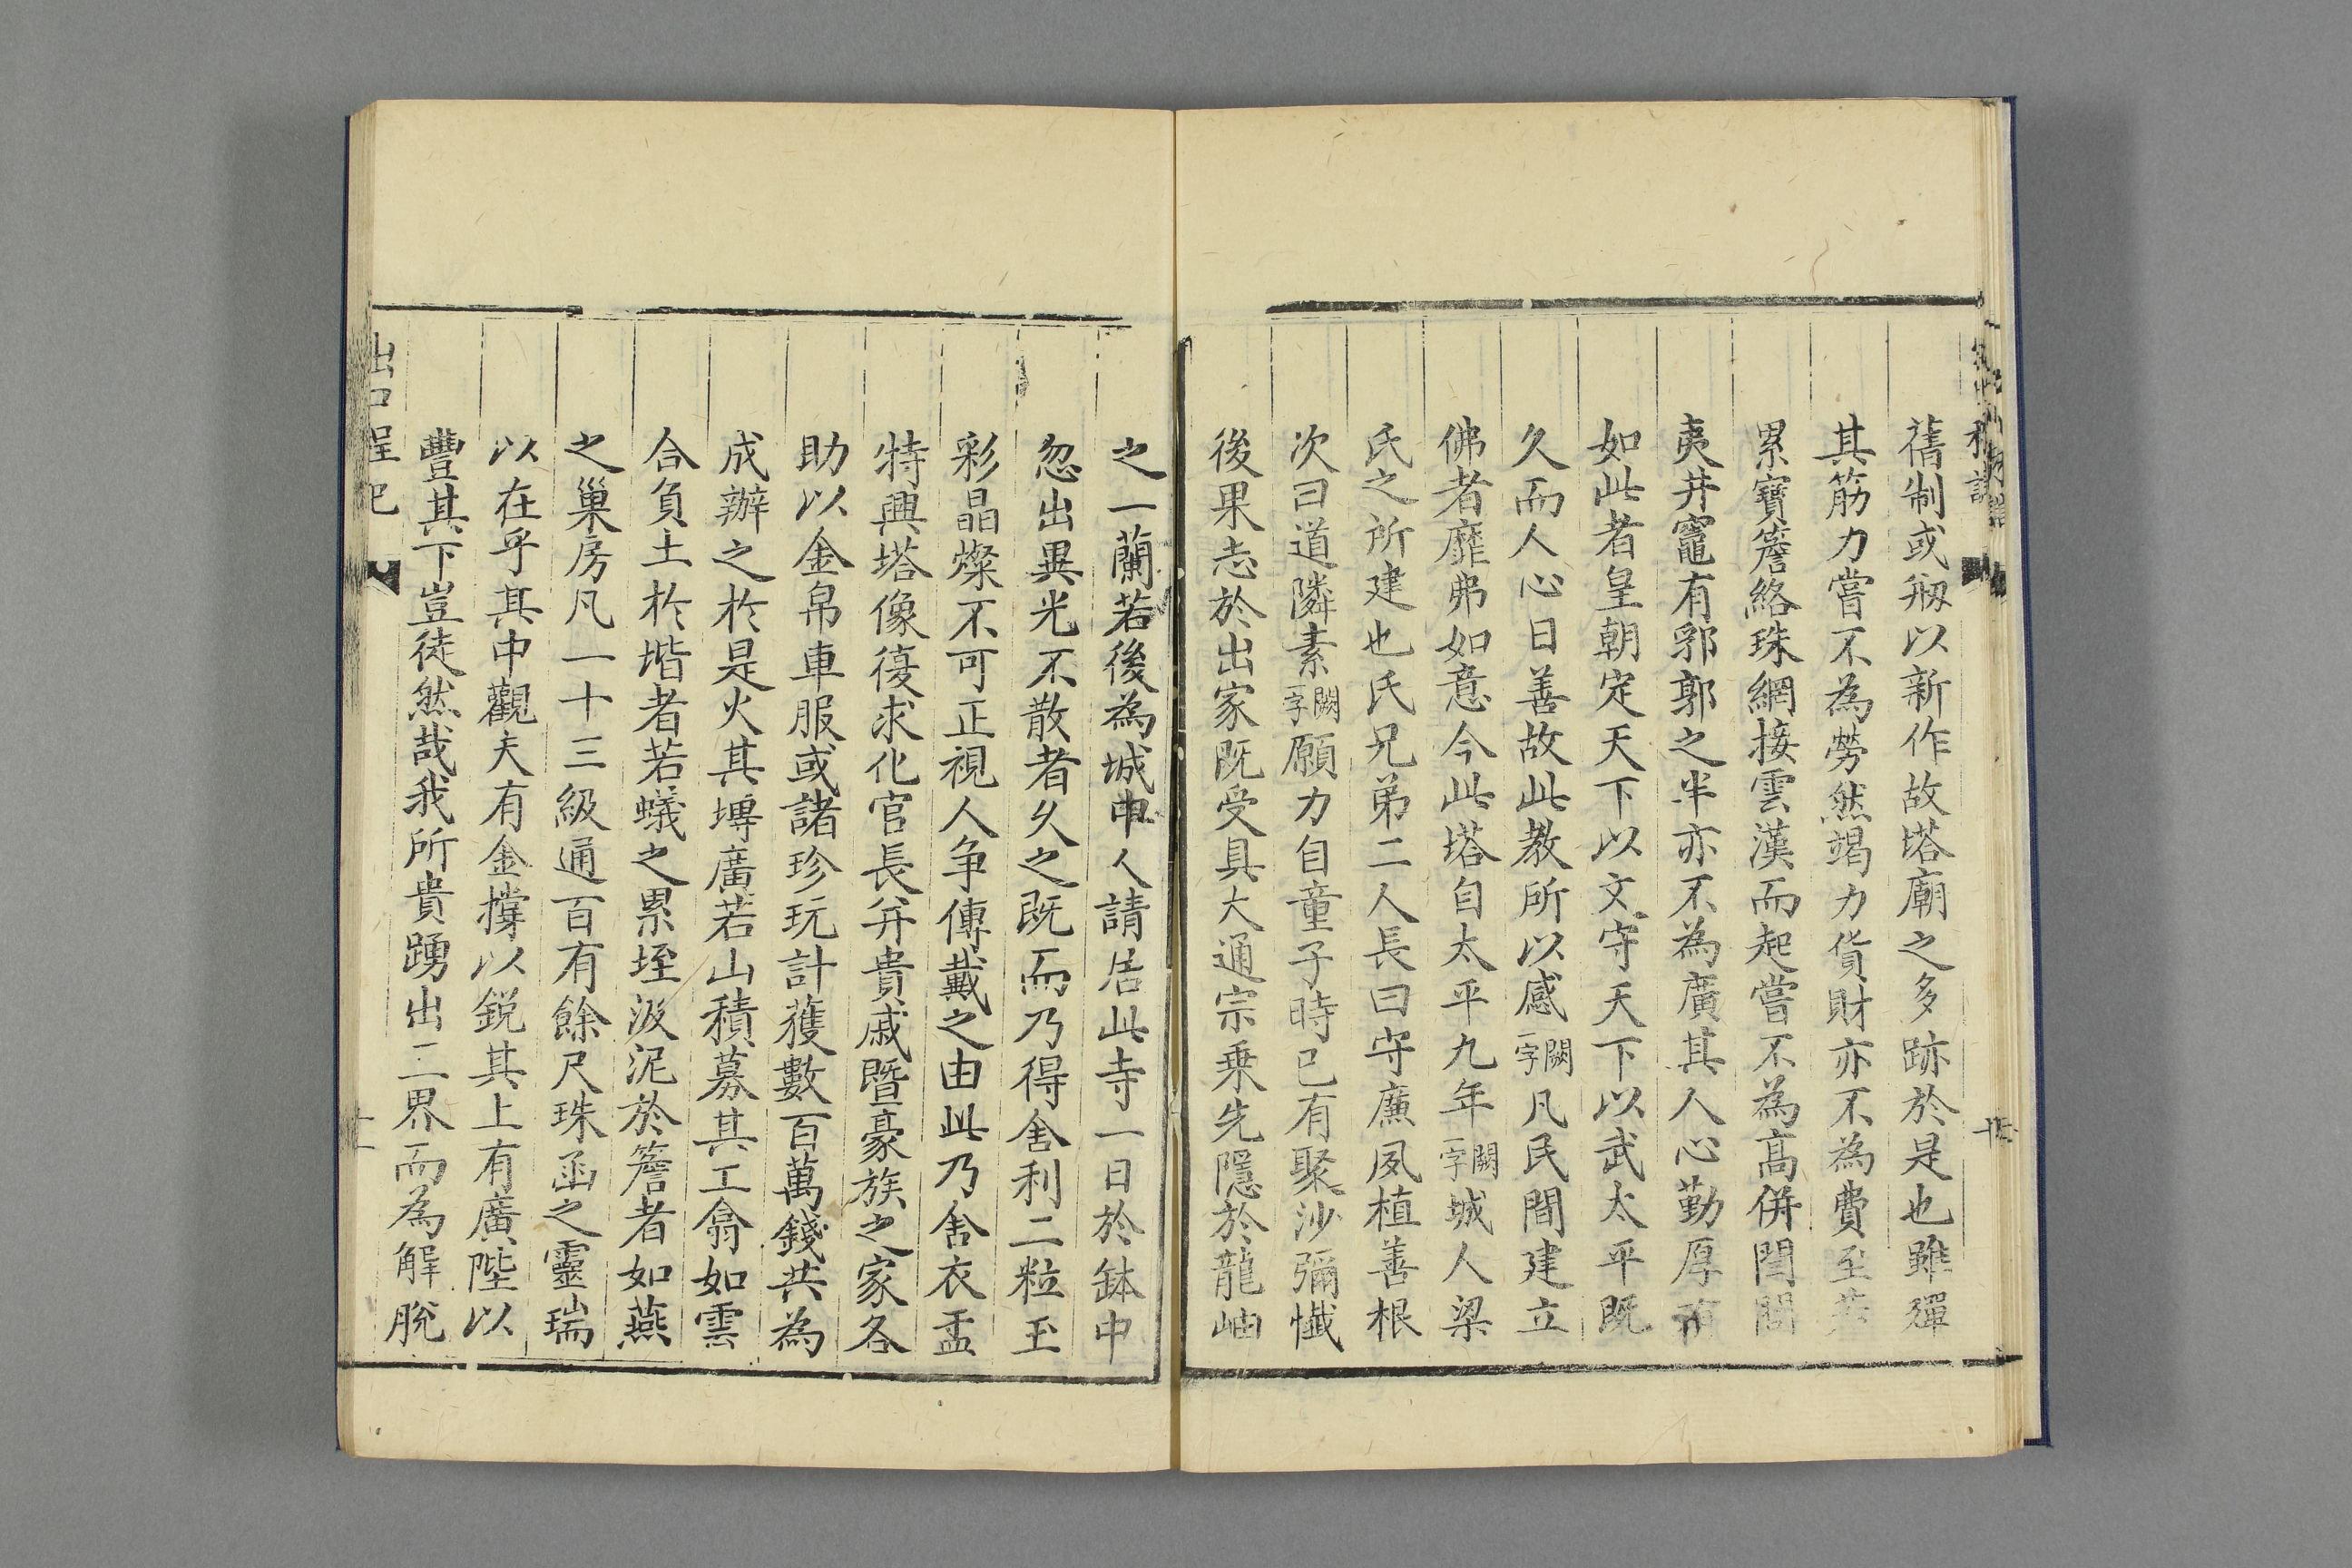 舊制或剏以新作故塔廟之多跡於是也雖殫
其筋力嘗不為勞然竭力貨財亦不為費至
累寶簷絡珠網接雲漢而起嘗不為高併閭閻
夷井竈有郛郭之半亦不為廣其人心勤厚有
如此者皇朝定天下以文守天下以武太平既
久而人心日善故此教所以感闕一字凡民間建立
佛者靡弗如意今此塔自太平九年闕一字城人梁
氏之所建也氏兄弟二人長曰守廉夙植善根
次曰道隣素闕一字願力自童子時已有聚沙彌懺
後果志於出家既受具大通宗乗先隱於龍岫
之一蘭若後為城中人請居此寺一日於鉢中
忽出異光不散者久之既而乃得舍利二粒玉
彩晶燦不可正視人争傳戴之由此乃舍衣盂
特興塔像復求化官長并貴戚暨豪族之家各
助以金帛車服或諸珍玩計獲數百萬錢共為
成辦之於是火其塼廣若山積募其工翕如雲
合負土於堦者若蟻之累垤汲泥於簷者如燕
之巢房凡一十三級通百有餘尺珠函之靈瑞
以在乎其中觀夫有金撑以鋭其上有廣陛以
豐其下豈徒然哉我所貴踴出二界而為解脫
出口程記